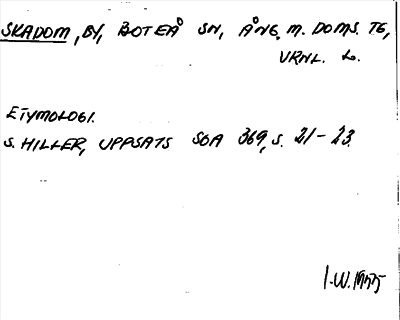 SKADOM, BY, BOTEÅ SN, ÅNG. M. DOMS. TG,
VRNL. L.
ETYMOLOGI.
S. HILLER, UPPSATS SOA 369, S. 21-23.
I.W. 1955